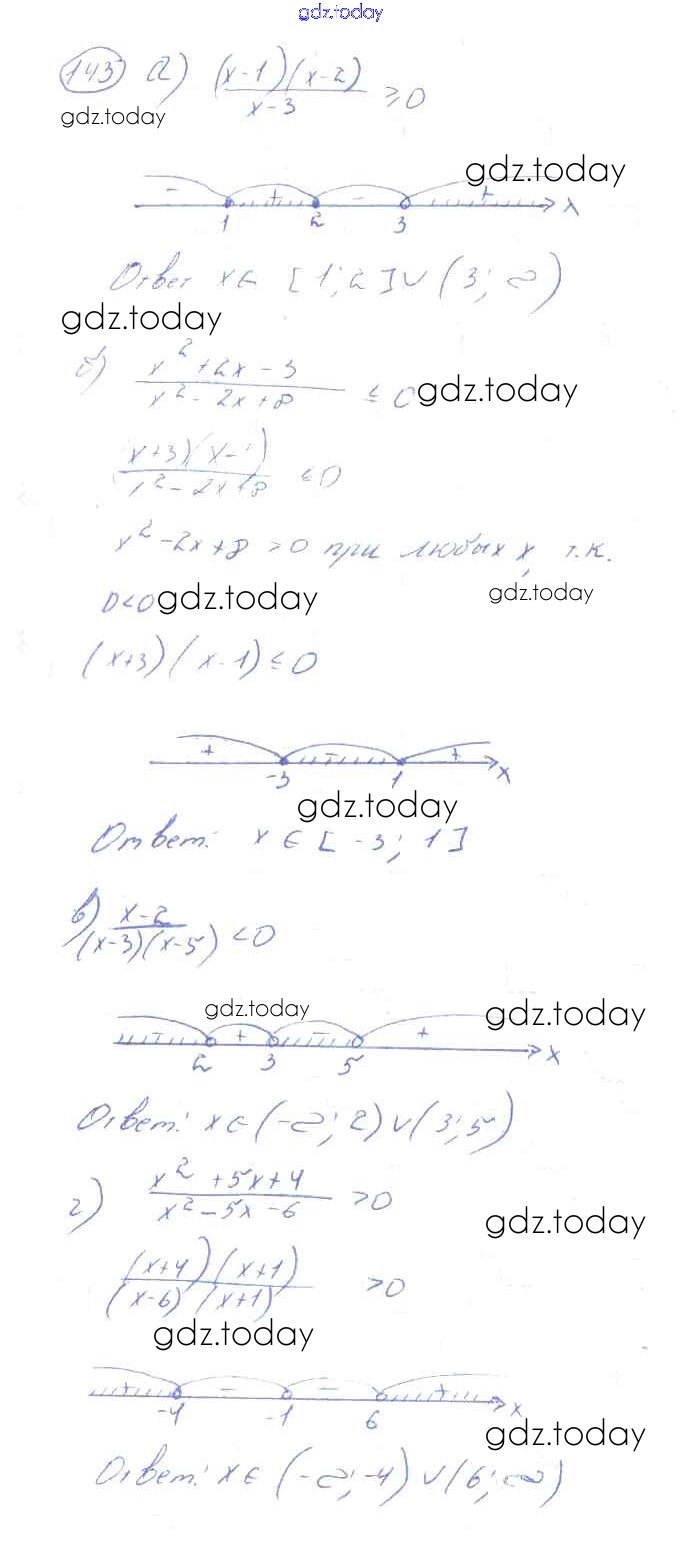 gdz.today
143 а) (x-1)(x-2)/x-3 ≥0
gdz.today
gdz.today
- + - +
1 2 3 x
Ответ x∈ [1;2]∪(3;∞)
gdz.today
б) x²+2x-3/x²-2x+8 ≤ 0
gdz.today
(x+3)(x-1)/x²-2x+8 ≤0
x²-2x+8 >0 при любых x, т.к.
D<0
gdz.today
gdz.today
(x+3)(x-1)≤0
+ - +
-3 1 x
gdz.today
Ответ: x∈[-3;1]
в) x-2/(x-3)(x-5) <0
gdz.today
gdz.today
- + - +
2 3 5 x
Ответ: x∈(-∞;2)∪(3;5)
г) x²+5x+4/x²-5x-6 >0
gdz.today
(x+4)(x+1)/(x-6)(x+1) >0
gdz.today
+ - - +
-4 -1 6 x
gdz.today
Ответ: x∈(-∞;-4)∪(6;∞)